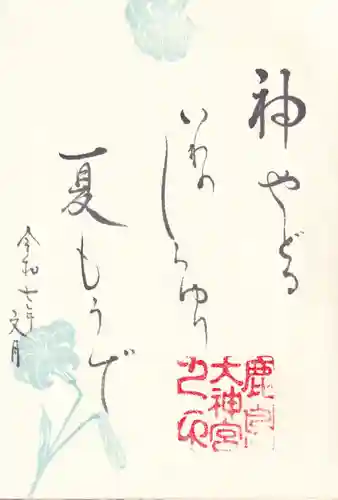 神やどる
いわの
しらゆり
夏もうで
令和七年
文月
大神宮